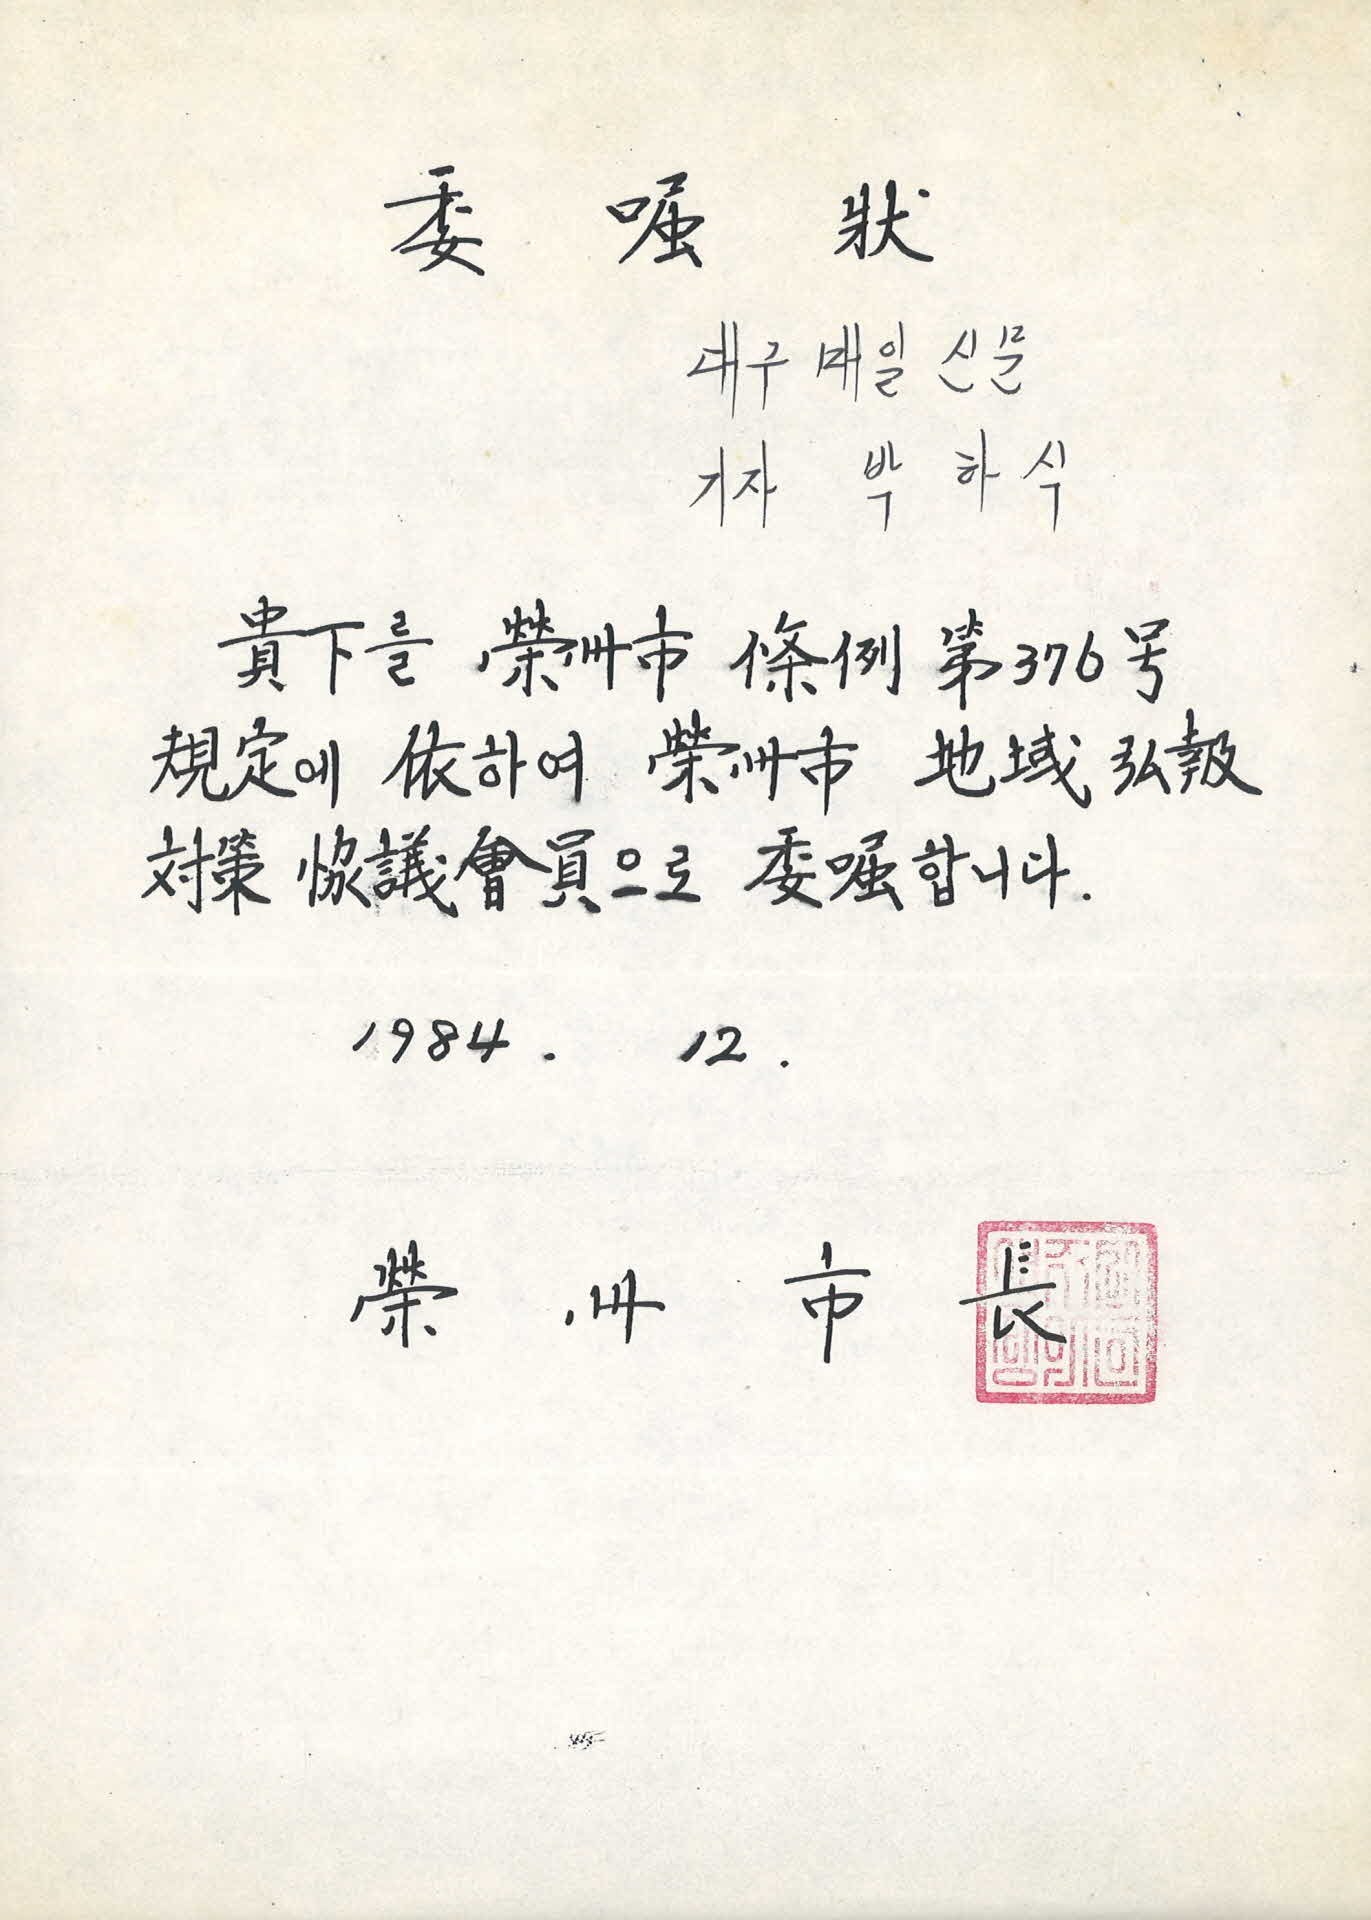 委嘱狀
대구 매일 신문
기자 박하식
貴下를 榮州市 條例 第376号
規定에 依하여 榮州市 地域 弘報
対策 協議會員으로 委嘱합니다.
1984. 12.
榮州市長